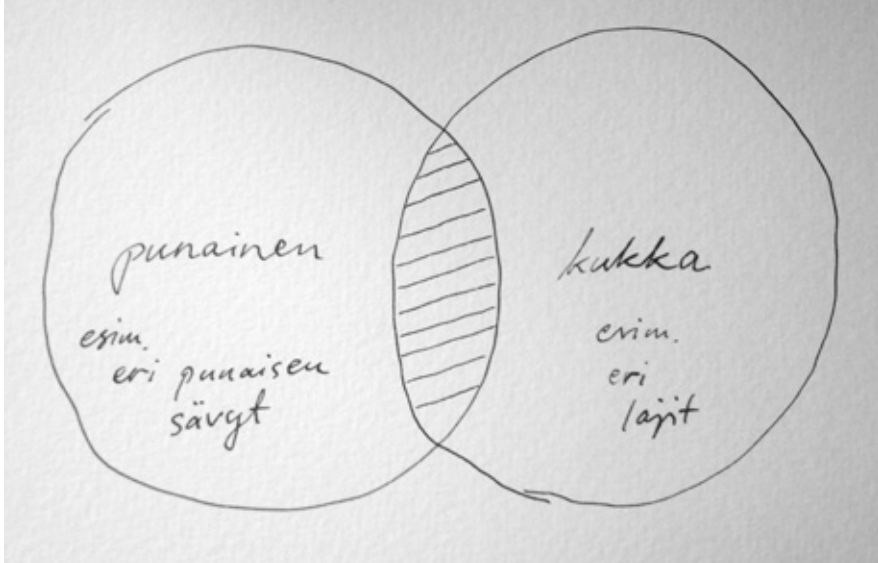 punainen
esim.
eri punaisen
sävyt
kukka
esim.
eri
lajit